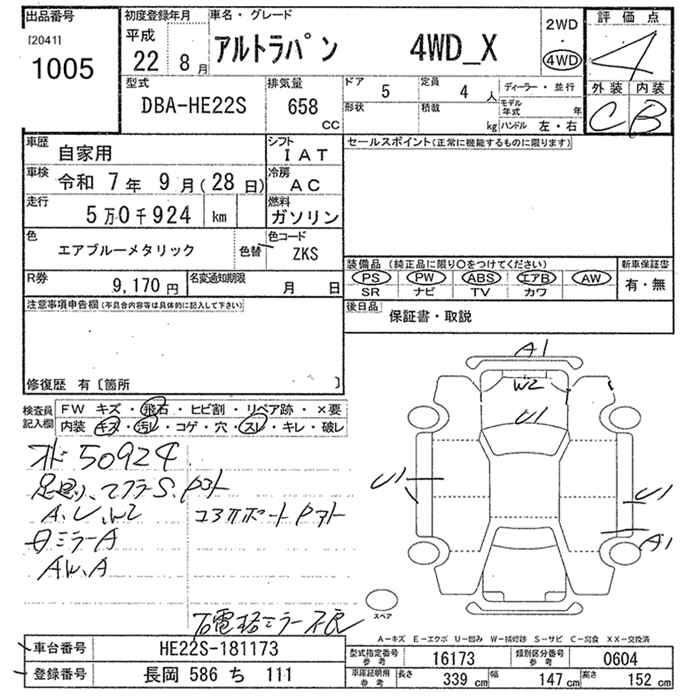 出品番号
[2041]
1005
初度登録年月
平成
22 8月
車名・グレード
アルトラパン 4WD_X
2WD
4WD
評価点
4
外装 内装
C B
型式
DBA-HE22S
排気量
658 CC
ドア 5
形状
定員 4人
積載 kg
ディーラー・並行
モデル年式 年
ハンドル 左・右
車歴
自家用
シフト
IAT
車検
令和 7年 9月(28日)
冷房
AC
走行
5万0千924 km
燃料
ガソリン
色
エアブルーメタリック
色替
色コード
ZKS
R券 9,170円
名変通知期限 月 日
セールスポイント(正常に機能するものに限ります)
装備品(純正品に限り○をつけてください)
PS PW ABS エアB AW
SR ナビ TV カワ
新車保証書
有・無
後日品
保証書・取説
注意事項申告欄(不具合内容等は具体的に記入して下さい)
修復歴 有〔箇所 〕
検査員記入欄
FW キズ・飛石・ヒビ割・リペア跡・×要
内装 キズ・汚レ・コゲ・穴・スレ・キレ・破レ
オド50924
足廻り、マフラS.Pオト
A.U.W2
コラムサポートPオト
ミラーA
AW.A
右電格ミラー不良
A1
W2
U1
U1
U1
A1
スペア
A-キズ E-エクボ U-凹み W-補修跡 S-サビ C-腐食 XX-交換済
車台番号 HE22S-181173
登録番号 長岡 586 ち 111
型式指定番号 参考 16173
類別区分番号 参考 0604
車庫証明用 参考
長さ 339 cm 幅 147 cm 高さ 152 cm